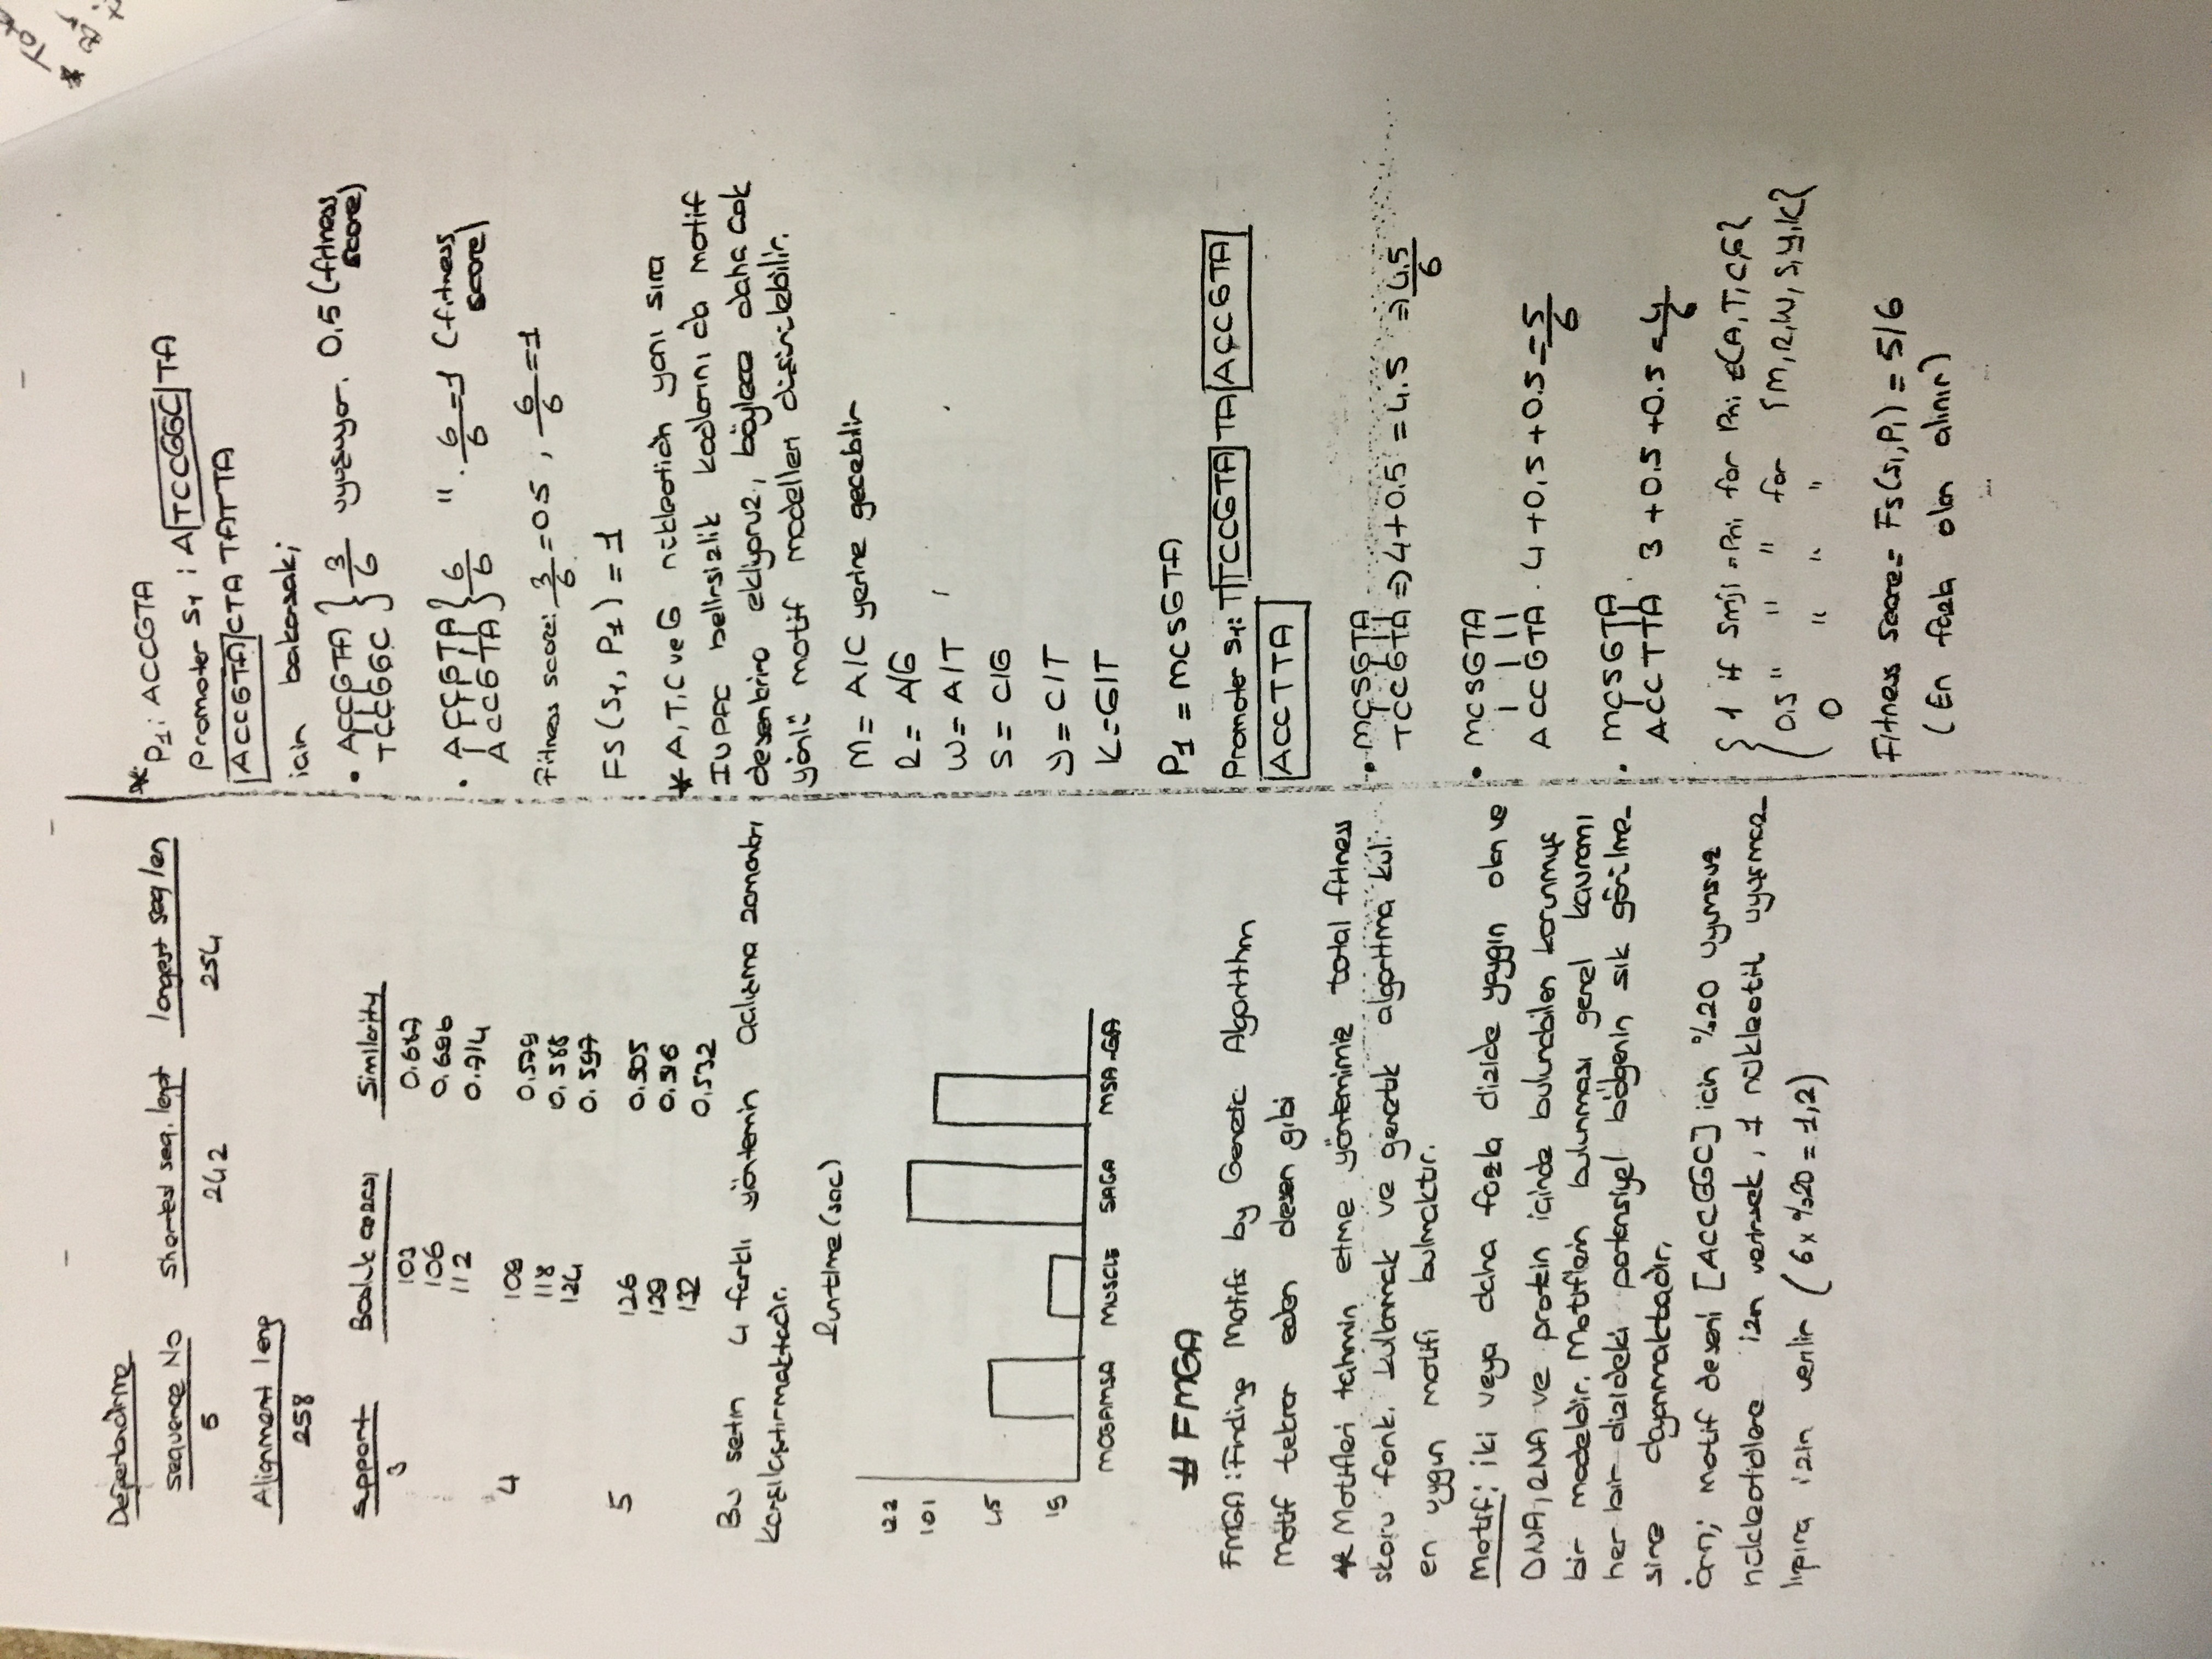 Değerlendirme
Sequence No Shortest seq. lengt longest seq len
5 242 254
Alignment leng
258
support Boşluk cezası Similarity
3 103 0.687
106 0.696
112 0.714
4 109 0.579
118 0.588
124 0.597
5 126 0.505
129 0.516
132 0.532
Bu setin 4 farklı yöntemin çalışma zamanları
karşılaştırmaktadır.
Runtime (sec)
122
101
45
15
MOGAMSA MUSCLE SAGA MSA-GA
# FMGA
FMGA: Finding Motifs by Genetic Algorithm
Motif tekrar eden desen gibi
* Motifleri tahmin etme yöntemimiz total fitness
skoru fonk. kullanmak ve genetik algoritma kul.
en uygun motifi bulmaktır.
Motif; iki veya daha fazla dizide yaygın olan ve
DNA, RNA ve protein içinde bulunabilen korunmuş
bir modeldir. Motiflerin bulunması genel kavramı
her bir dizideki potansiyel bölgenin sık görülme-
sine dayanmaktadır.
örn; motif deseni [ACCGGC] için %20 uyumsuz
nükleotidlere izin verirsek, 1 nükleotit uyuşmaz-
lığına izin verilir (6 x %20 = 1,2)
* P1: ACCGTA
Promoter S1 : A TCCGGC TA
ACCGTA CTA TATTA
için bakarsak;
• ACCGTA } 3/6 uyuşuyor. 0,5 (fitness
TCCGGC score)
• ACCGTA } 6/6 " . 6/6 = 1 (fitness
ACCGTA score)
Fitness score: 3/6 = 0.5 , 6/6 = 1
FS(S1, P1) = 1
* A, T, C ve G nükleotidin yanı sıra
IUPAC belirsizlik kodlarını da motif
desenlerine ekliyoruz, böylece daha çok
yönlü motif modelleri düşünülebilir.
M = A/C yerine geçebilir
R = A/G
W = A/T
S = C/G
Y = C/T
K = G/T
P1 = MCSGTA
Promoter S1: T TCCGTA TA ACCGTA
ACCTTA
• MCSGTA
TCCGTA => 4+0.5 = 4.5 => 4.5/6
• MCSGTA
ACCGTA . 4 + 0,5 + 0.5 = 5/6
• MCSGTA
ACCTTA 3 + 0.5 + 0.5 = 4/6
{ 1 if Smji = Pni for Pni ∈ {A, T, C, G}
0.5 " " " for {M, R, W, S, Y, K}
0 " " "
Fitness Score = Fs(S1, P1) = 5/6
(En fazla olan alınır)
* Tot